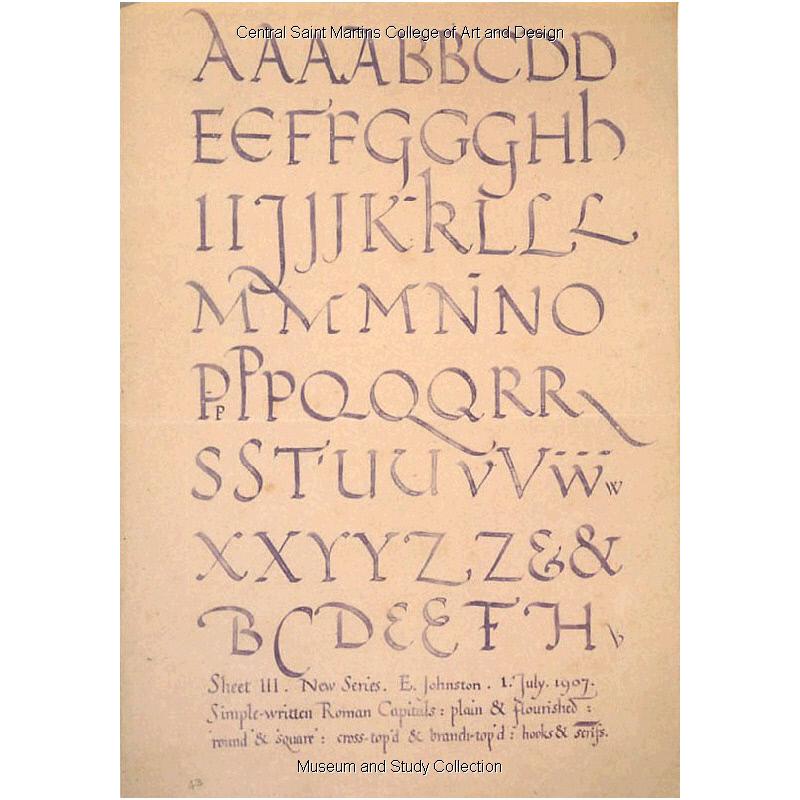 Central Saint Martins College of Art and Design
AAAABBCDD
EEFFGGGHh
IIJJJKkLLL
MMMNNO
PPPPQQQRR
SSTUUVVWW
XXYYZZ&&
BCDEEFH
Sheet III. New Series. E. Johnston. 1. July. 1907.
Simple-written Roman Capitals: plain & flourished:
"round" & "square": cross-top'd & branch-top'd: hooks & serifs.
Museum and Study Collection